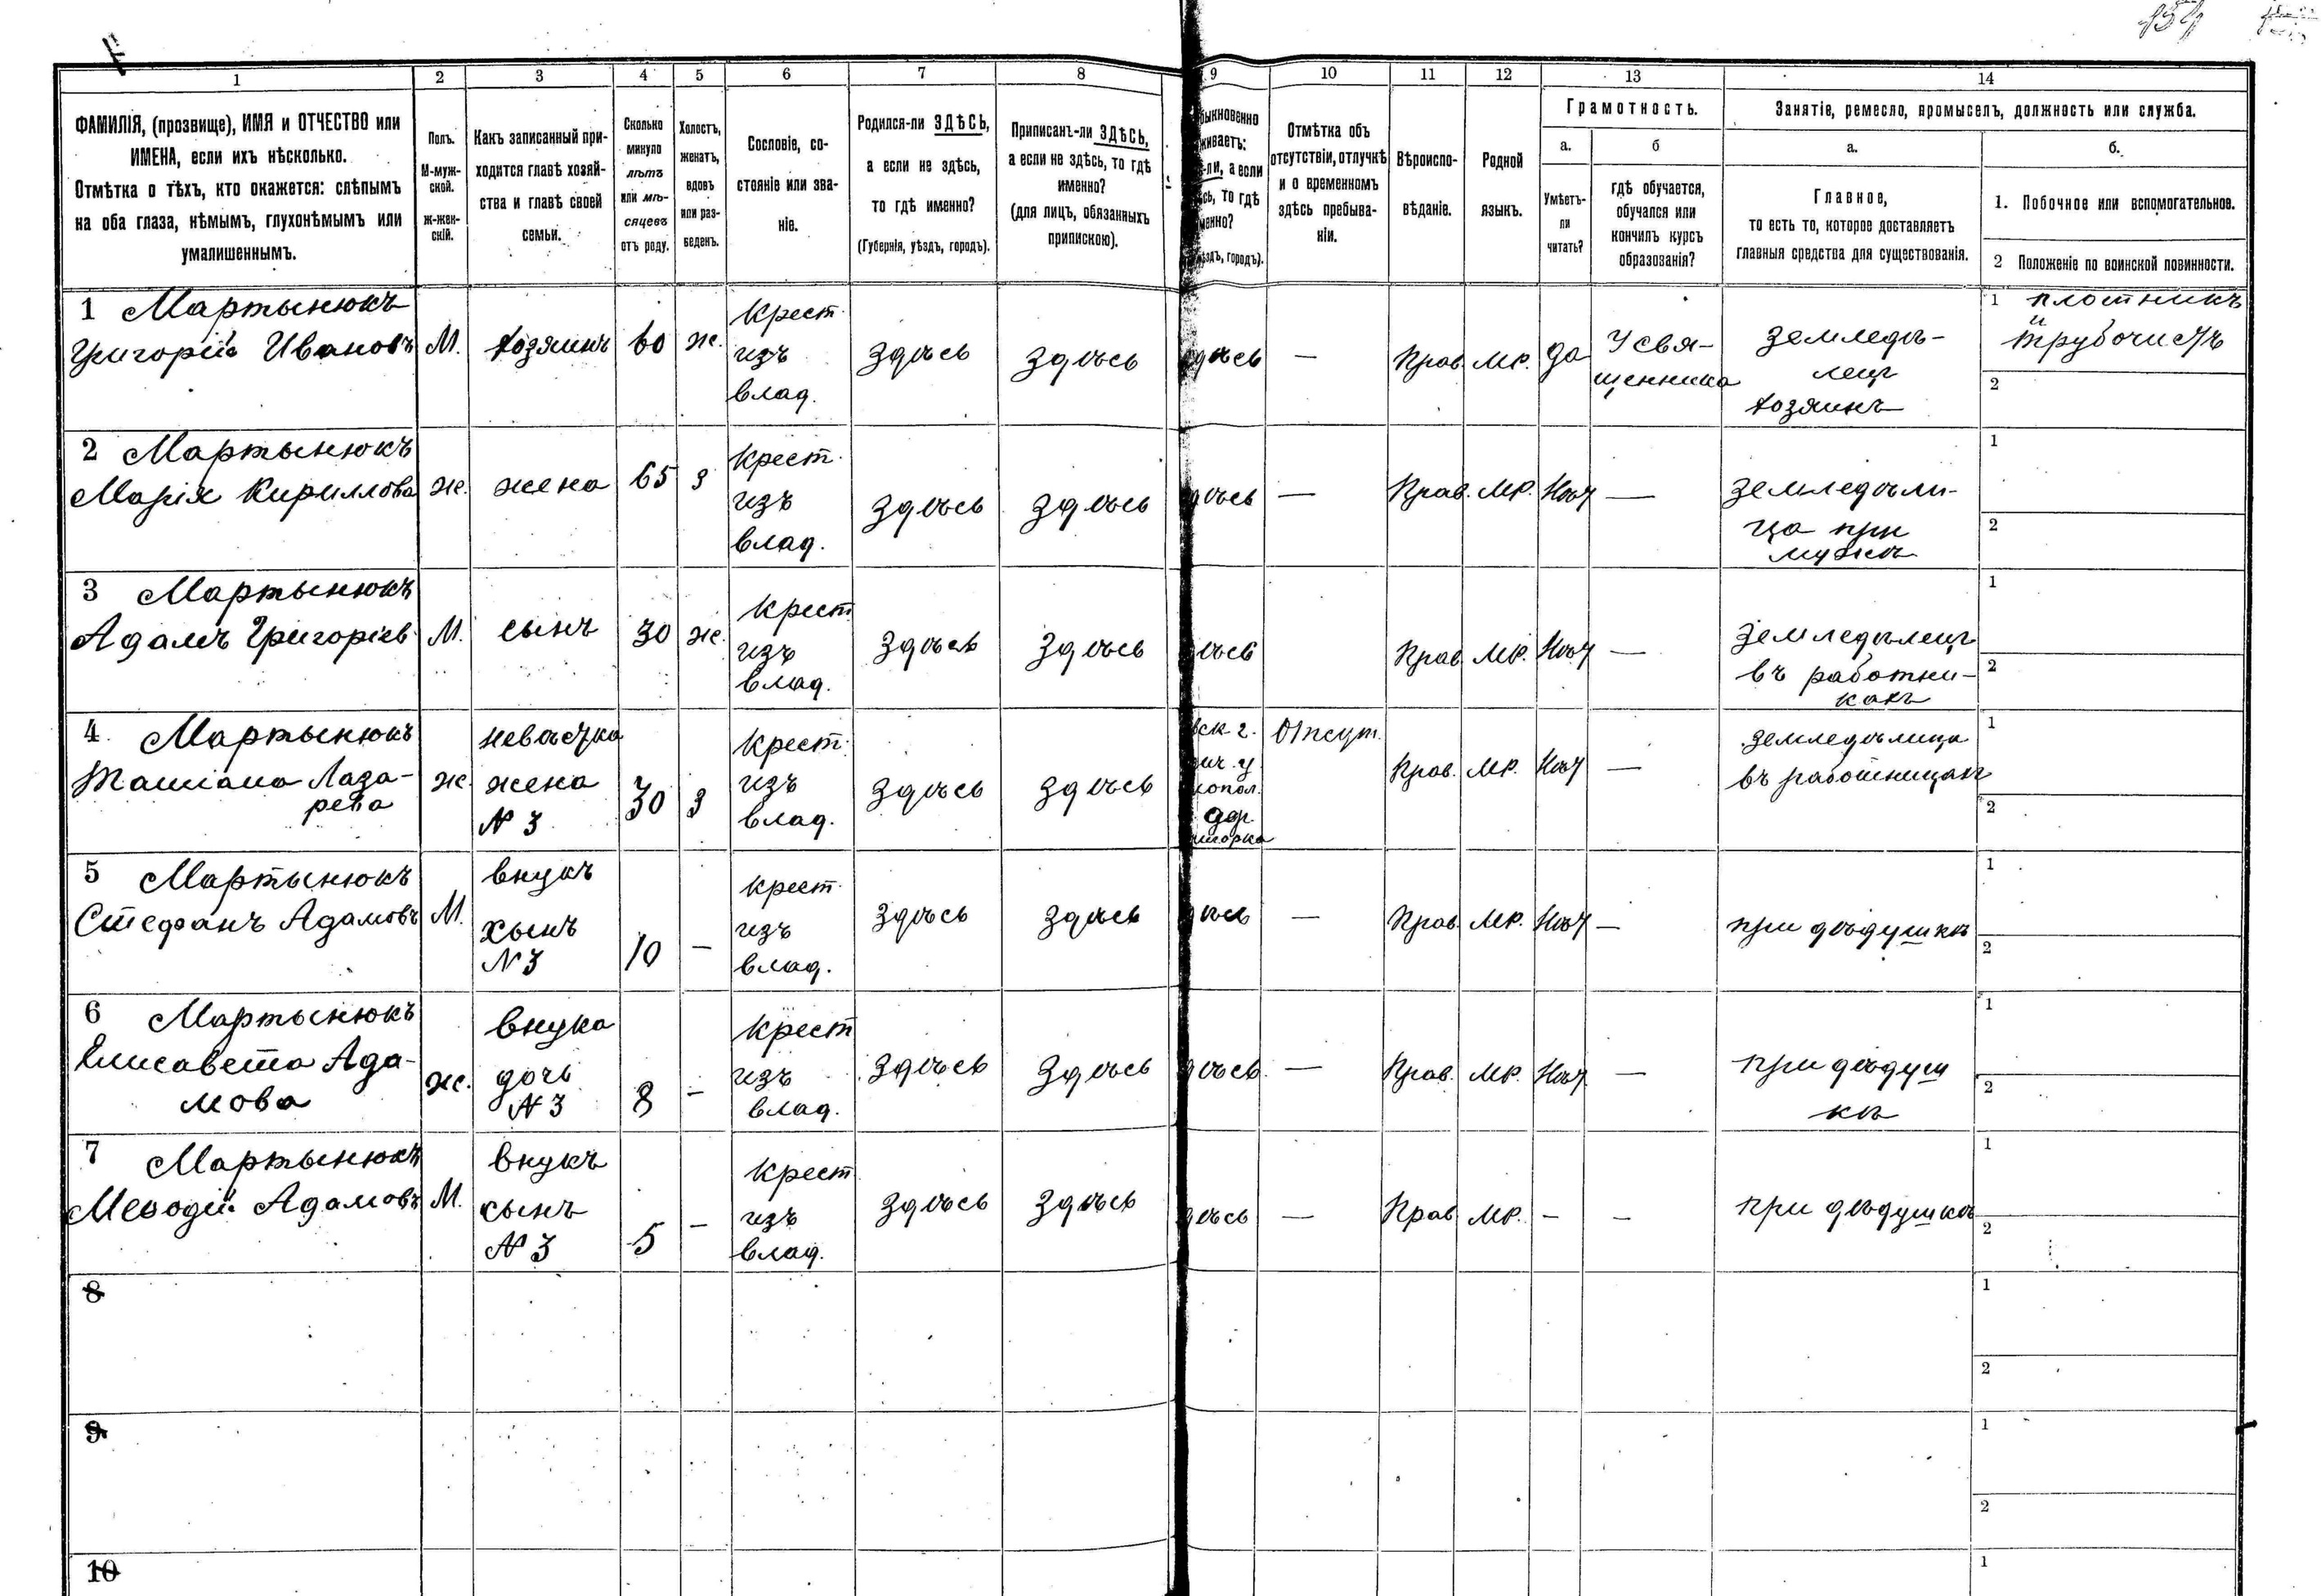 1 2 3 4 5 6 7 8 9 10 11 12 13 14
ФАМИЛІЯ, (прозвище), ИМЯ и ОТЧЕСТВО или
ИМЕНА, если ихъ нѣсколько.
Отмѣтка о тѣхъ, кто окажется: слѣпымъ
на оба глаза, нѣмымъ, глухонѣмымъ или
умалишеннымъ.
Полъ.
М-муж-
ской.
ж-жен-
скій.
Какъ записанный при-
ходится главѣ хозяй-
ства и главѣ своей
семьи.
Сколько
минуло
лѣтъ
или мѣ-
сяцевъ
отъ роду.
Холостъ,
женатъ,
вдовъ
или раз-
веденъ.
Сословіе, со-
стояніе или зва-
ніе.
Родился-ли ЗДѢСЬ,
а если не здѣсь,
то гдѣ именно?
(Губернія, уѣздъ, городъ).
Приписанъ-ли ЗДѢСЬ,
а если не здѣсь, то гдѣ
именно?
(для лицъ, обязанныхъ
припискою).
быкновенно
живаетъ:
-ли, а если
сь, то гдѣ
менно?
ѣздъ, городъ).
Отмѣтка объ
отсутствіи, отлучкѣ
и о временномъ
здѣсь пребыва-
ніи.
Вѣроиспо-
вѣданіе.
Родной
языкъ.
Грамотность.
а.
Умѣетъ-
ли
читать?
б
гдѣ обучается,
обучался или
кончилъ курсъ
образованія?
Занятіе, ремесло, промыселъ, должность или служба.
а.
Главное,
то есть то, которое доставляетъ
главныя средства для существованія.
б.
1. Побочное или вспомогательное.
2 Положеніе по воинской повинности.
1 Мартынюкъ
Григорій Ивановъ
М.
хозяинъ
60
ж.
крест.
изъ
влад.
здѣсь
здѣсь
здѣсь
—
Прав.
мр.
да
У свя-
щенника
земледѣ-
лец
хозяинъ
1 плотникъ
и
трубочистъ
2
2 Мартынюкъ
Марія Кириллова
ж.
жена
65
з
крест.
изъ
влад.
здѣсь
здѣсь
дѣсь
—
Прав.
мр.
Нѣт
—
земледѣли-
ца при
мужѣ
1
2
3 Мартынюкъ
Адамъ Григоріев
М.
сынъ
30
ж.
крест
изъ
влад.
здѣсь
здѣсь
ѣсь
Прав
мр.
Нѣт
—
земледѣлец
въ работни-
кахъ
1
2
4. Мартынюкъ
Татіана Лаза-
рева
ж.
невѣстка
жена
№ 3
30
з
крест.
изъ
влад.
здѣсь
здѣсь
ск г.
у
опол.
дер.
Отсут.
Прав.
мр.
Нѣт
—
земледѣлица
въ работницах
1
2
5 Мартынюкъ
Стефанъ Адамовъ
М.
внукъ
сынъ
№ 3
10
—
крест.
изъ
влад.
здѣсь
здѣсь
дѣсь
—
Прав.
мр.
Нѣт
—
при дѣдушкѣ
1
2
6 Мартынюкъ
Елисавета Ада-
мова
ж.
внука
дочь
№ 3
8
—
крест
изъ
влад.
здѣсь
здѣсь
дѣсь
—
Прав.
мр.
Нѣт
—
при дѣдуш
кѣ
1
2
7 Мартынюкъ
Меѳодій Адамовъ
М.
внукъ
сынъ
№ 3
5
—
крест
изъ
влад.
здѣсь
здѣсь
дѣсь
—
Прав
мр.
—
—
при дѣдушкѣ
1
2
8
1
2
9.
1
2
10
1